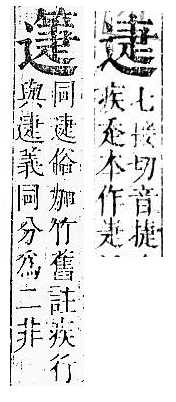 疌
七接切音捷
疾本作疌
同疌俗加竹舊註疾行
與疌義同分爲二非